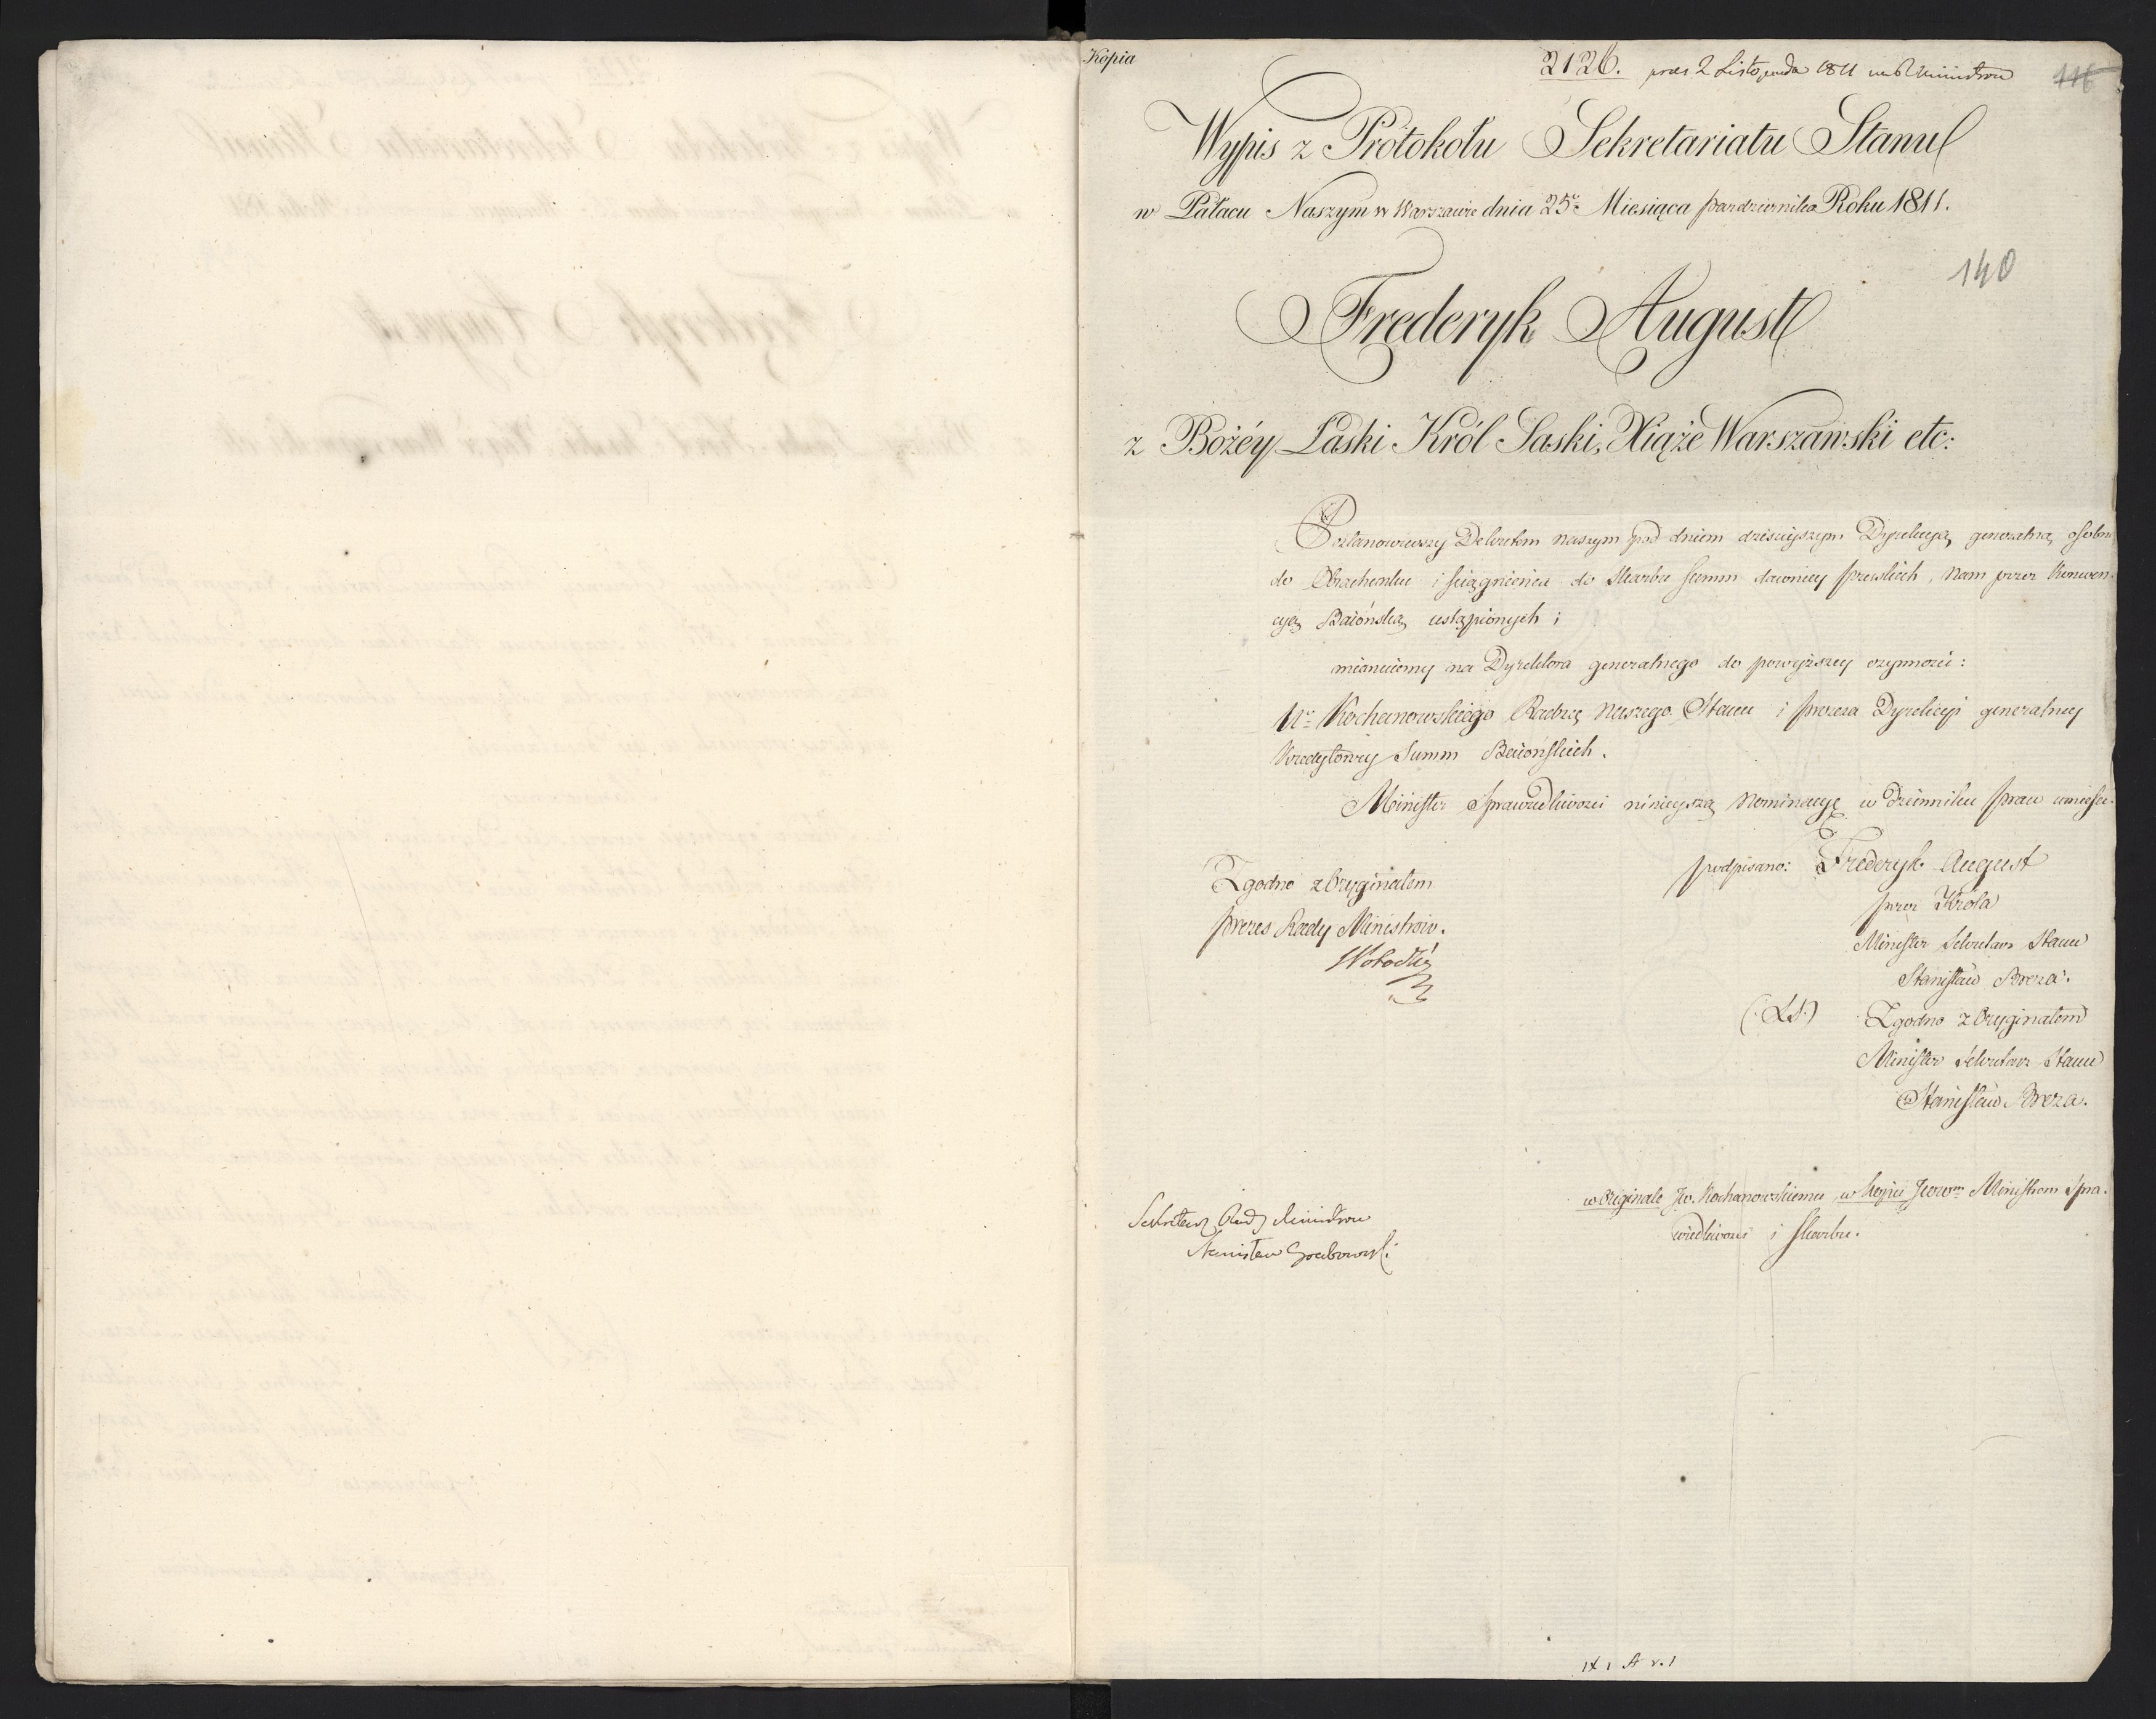 Kopia
2126. praes 2 Listopada 1811 Ministrow
116
Wypis z Protokołu Sekretariatu Stanu
w Pałacu Naszym w Warszawie dnia 25º Miesiąca Października Roku 1811.
140
Frederyk August
z Bożéy Łaski Król Saski, Xiąże Warszawski etc:
Postanowiwszy Dekretem naszym pod dniem dzisieyszym Dyrekcyą generalną osobną
do Obrachunku i ściągnienia do Skarbu summ dawniey pruskich, Nam przez Konwen-
cyą Baiońską ustąpionych;
mianuiemy na Dyrektora generalnego do powyższey czynności:
Ur. Kochanowskiego Radzcę Naszego Stanu i Prezesa Dyrekcyi generalney
Kredytowey Summ Baiońskich.
Minister Sprawiedliwości ninieyszą Nominacyę w Dzienniku Praw umieści.
podpisano: Frederyk August
przez Króla
Minister Sekretarz Stanu
Stanisław Breza.
(:LS:) Zgodno z Oryginałem
Minister Sekretarz Stanu
Stanisław Breza.
Zgodno z Oryginałem
Prezes Rady Ministrów.
w Originale Jw. Kochanowskiemu, w kopii JWW. Ministrom Spra-
wiedliwości i Skarbu.
Sekretarz Rady Ministrow
Stanisław Grabowski